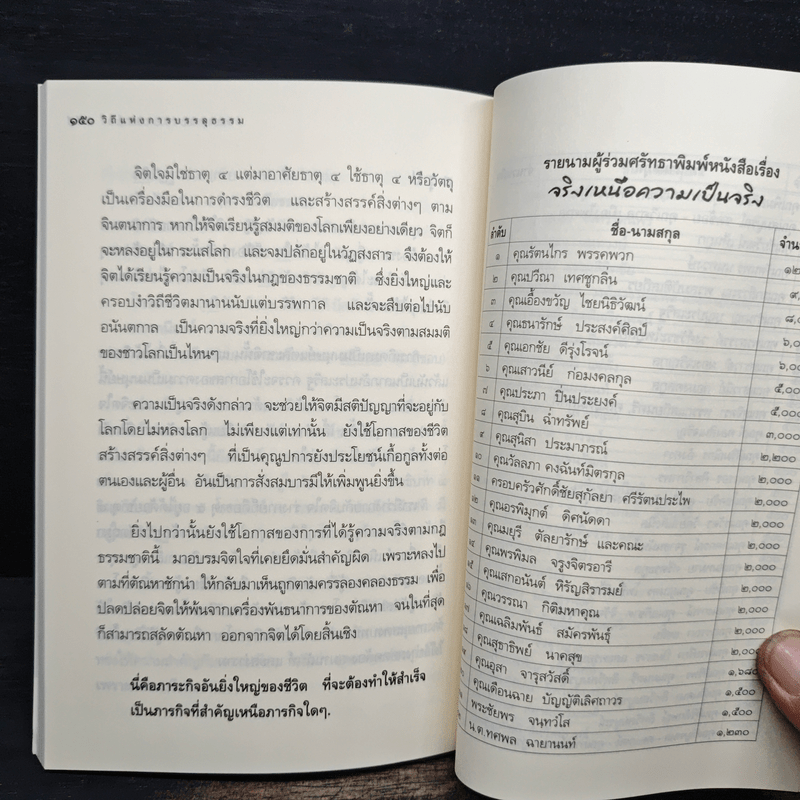 ๑๕๐ วิถีแห่งการบรรลุธรรม
จิตใจมิใช่ธาตุ ๔ แต่มาอาศัยธาตุ ๔ ใช้ธาตุ ๔ หรือวัตถุ
เป็นเครื่องมือในการดำรงชีวิต และสร้างสรรค์สิ่งต่างๆ ตาม
จินตนาการ หากให้จิตเรียนรู้สมมติของโลกเพียงอย่างเดียว จิตก็
จะหลงอยู่ในกระแสโลก และจมปลักอยู่ในวัฏสงสาร จึงต้องให้
จิตได้เรียนรู้ความเป็นจริงในกฎของธรรมชาติ ซึ่งยิ่งใหญ่และ
ครอบงำวิถีชีวิตมานานนับแต่บรรพกาล และจะสืบต่อไปนับ
อนันตกาล เป็นความจริงที่ยิ่งใหญ่กว่าความเป็นจริงตามสมมติ
ของชาวโลกเป็นไหนๆ
ความเป็นจริงดังกล่าว จะช่วยให้จิตมีสติปัญญาที่จะอยู่กับ
โลกโดยไม่หลงโลก ไม่เพียงแต่เท่านั้น ยังใช้โอกาสของชีวิต
สร้างสรรค์สิ่งต่างๆ ที่เป็นคุณูปการยังประโยชน์เกื้อกูลทั้งต่อ
ตนเองและผู้อื่น อันเป็นการสั่งสมบารมีให้เพิ่มพูนยิ่งขึ้น
ยิ่งไปกว่านั้นยังใช้โอกาสของการที่ได้รู้ความจริงตามกฎ
ธรรมชาตินี้ มาอบรมจิตใจที่เคยยึดมั่นสำคัญผิด เพราะหลงไป
ตามที่ตัณหาชักนำ ให้กลับมาเห็นถูกตามครรลองคลองธรรม เพื่อ
ปลดปล่อยจิตให้พ้นจากเครื่องพันธนาการของตัณหา จนในที่สุด
ก็สามารถสลัดตัณหา ออกจากจิตได้โดยสิ้นเชิง
นี่คือภาระกิจอันยิ่งใหญ่ของชีวิต ที่จะต้องทำให้สำเร็จ
เป็นภารกิจที่สำคัญเหนือภารกิจใดๆ.
รายนามผู้ร่วมศรัทธาพิมพ์หนังสือเรื่อง
จริงเหนือความเป็นจริง
ลำดับ ชื่อ-นามสกุล
๑ คุณรัตนไกร พรรคพวก
๒ คุณปวีณา เทศชูกลิ่น
๓ คุณเอื้องขวัญ ไชยนิธิวัฒน์
๔ คุณธนารักษ์ ประสงค์ศิลป์
๕ คุณเอกชัย ดีรุ่งโรจน์
๖ คุณเสาวนีย์ ก่อมงคลกูล
๗ คุณประภา ปิ่นประยงค์ ๕,๐๐๐
๘ คุณสุบิน ฉ่ำทรัพย์ ๓,๐๐๐
๙ คุณสุนิสา ประมาภรณ์ ๒,๒๐๐
คุณวัลลภา คงฉันท์มิตรกุล ๒,๐๐๐
ครอบครัวศักดิ์ชัยสุกัลยา ศรีรัตนประไพ ๒,๐๐๐
คุณอรพิมุกต์ ดิศนัดดา ๒,๐๐๐
คุณมยุรี ตัลยารักษ์ และคณะ ๒,๐๐๐
คุณพรพิมล จรูงจิตรอารี ๒,๐๐๐
คุณเสกอนันต์ หิรัญสิรารมย์ ๒,๐๐๐
คุณวรรณา กิติมหาคุณ ๒,๐๐๐
คุณเฉลิมพันธ์ สมัครพันธุ์ ๒,๐๐๐
คุณสุธาทิพย์ นาคสุข ๒,๐๐๐
คุณอุสา จารุสวัสดิ์ ๑,๖๘๐
คุณเดือนฉาย บัญญัติเลิศถาวร ๑,๕๐๐
พระชัยพร จนทวํโส ๑,๕๐๐
น.ต.ทศพล ฉายานนท์ ๑,๒๓๐